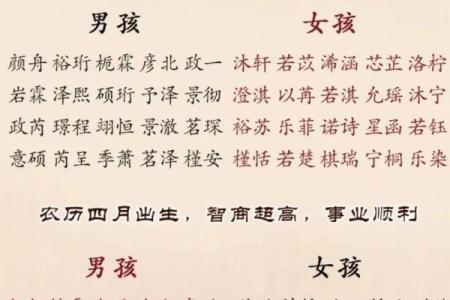 男孩 女孩
颜舟 裕珩 栀霖 彦北 政一 沐轩 若苡 浠涵 芯芷 洛柠
岩霖 泽熙 硕珩 予泽 景彻 澄淇 以苒 若淇 允瑶 沐宁
政芮 璟程 翊恒 景澈 茗琛 裕苏 乐菲 诺诗 星函 若钰
意硕 芮呈 季萧 茗泽 槿安 槿恬 若楚 棋瑞 宁桐 乐染
农历四月出生，智商超高，事业顺利
男孩 女孩